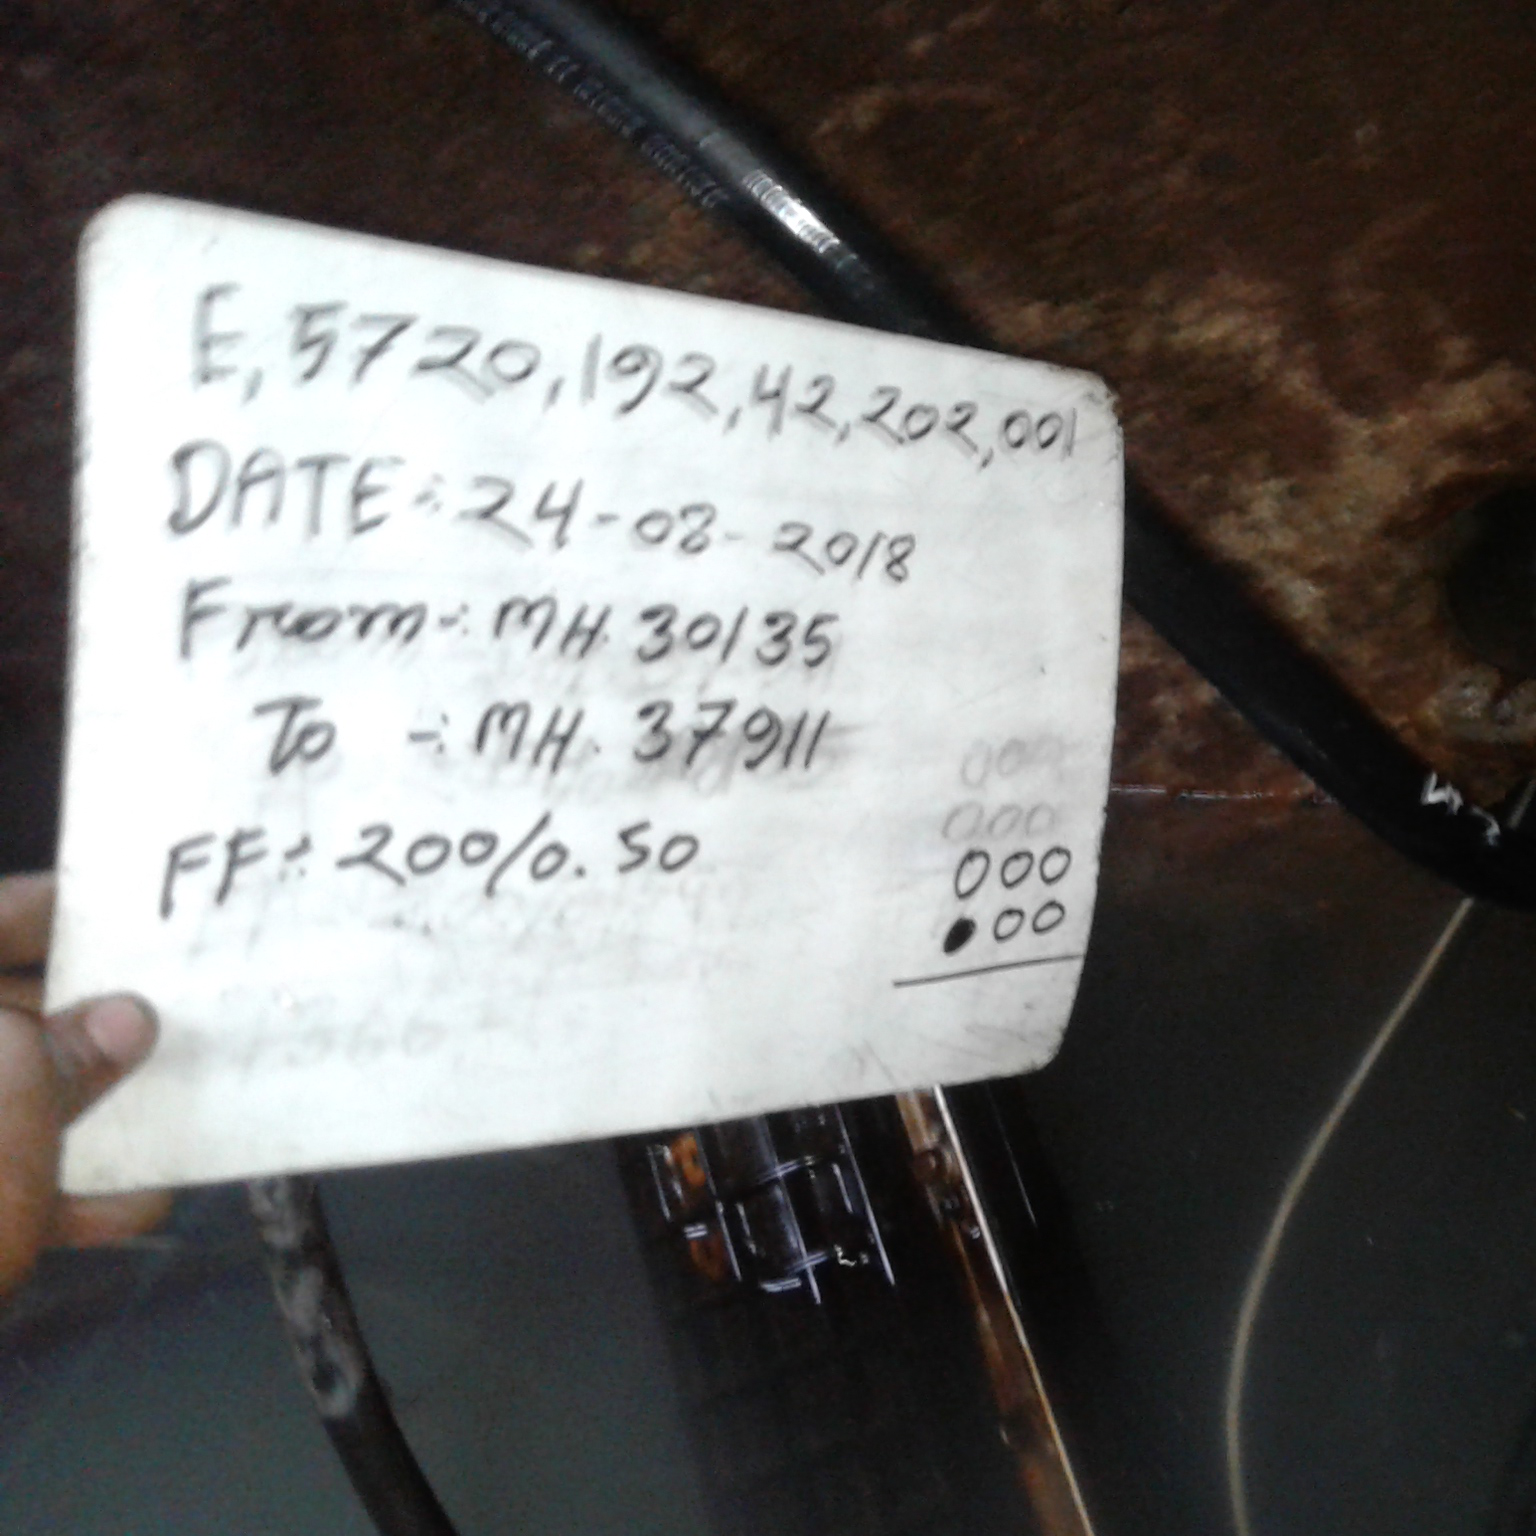 E, 5720, 192, 42, 202, 001
DATE:- 24-08-2018
From-:- MH. 30135
To -:- MH. 37911
FF:- 200/0.50
000
●00